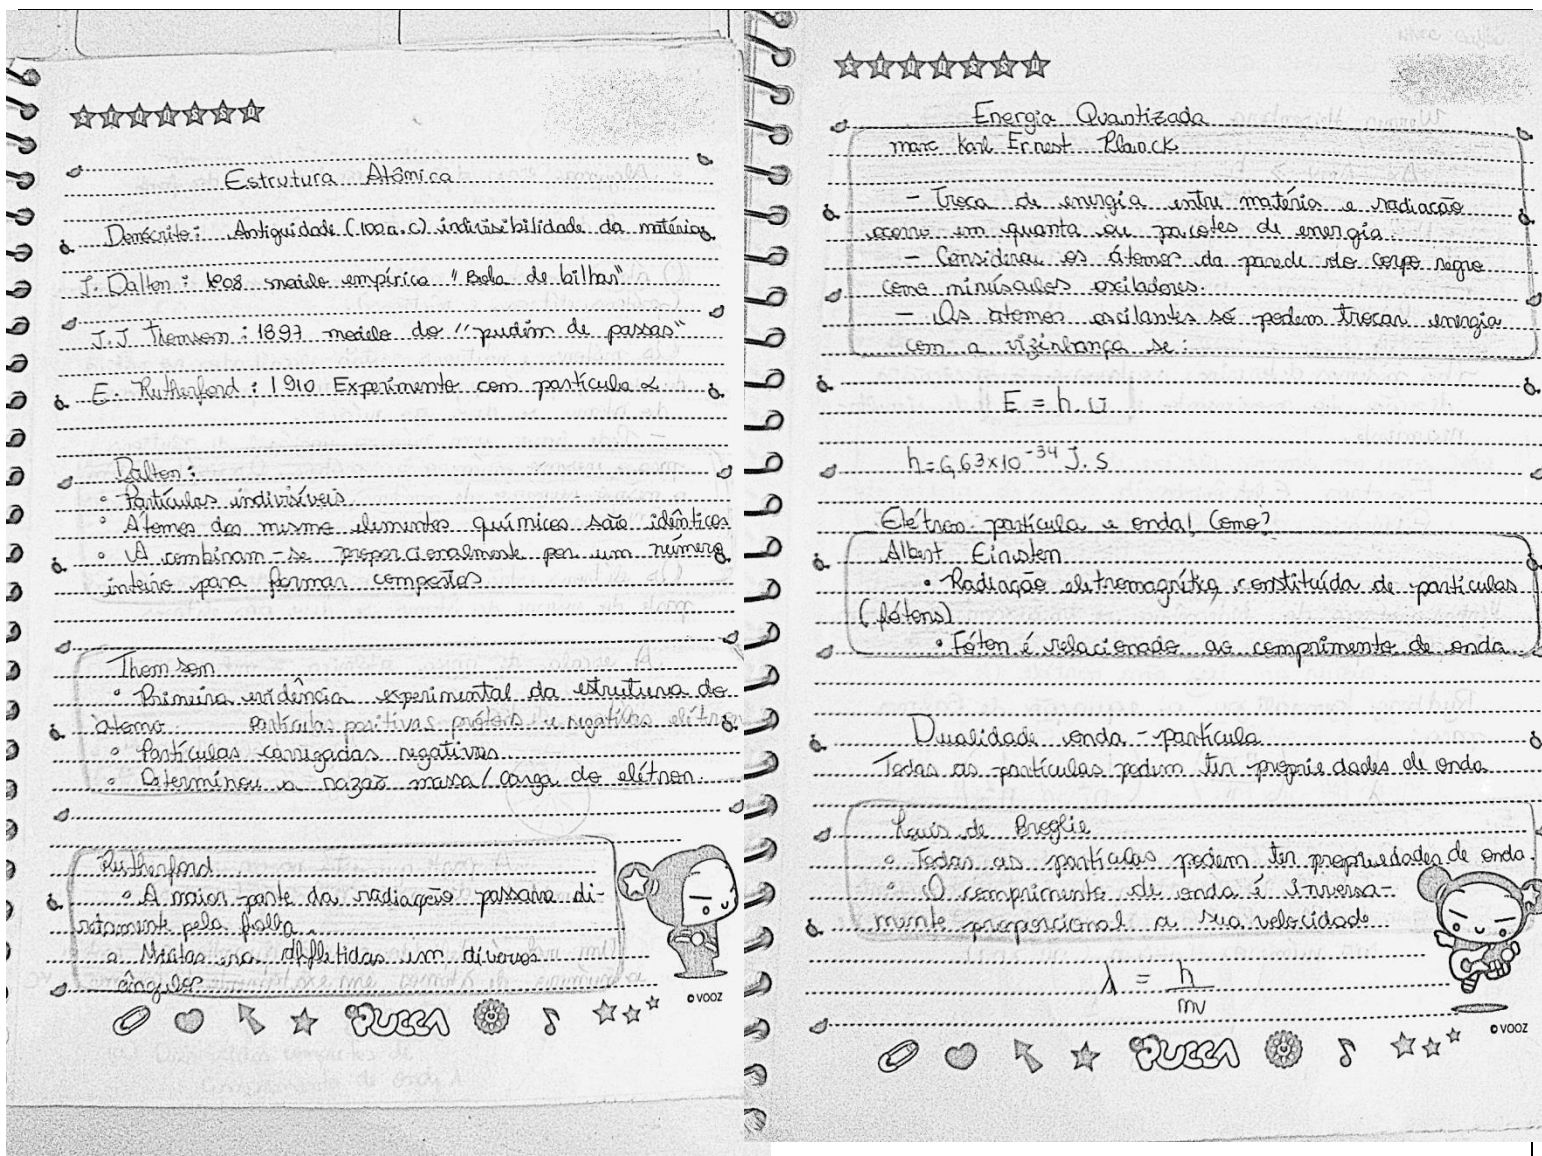 Estrutura Atômica
Demócrito: Antiguidade (100 a.c) indivisibilidade da matéria
J. Dalton: 1808 modelo empírico "Bola de bilhar"
J.J Thomson: 1897 modelo do "pudim de passas"
E. Rutherford: 1910 Experimento com partícula α
Dalton:
• Partículas indivisíveis
• Átomos dos mesmo elementos químicos são idênticos
• A combinam-se proporcionalmente por um número
inteiro para formar compostos
Thomson
• Primeira evidência experimental da estrutura do
átomo partículas positivas prótois e negatilas elétron
• Partículas carregadas negativas
• Determinou a razão massa/carga do elétron.
Rutherford
• A maior parte da radiação passava di-
retamente pela folha.
• Muitas era defletidas em diversos
ângulos
PUCCA
© VOOZ
Energia Quantizada
marc Karl Ernest Planck
- Troca de energia entre matéria e radiação
ocorre em quanta ou pacotes de energia.
- Considerou os átomos da parede do corpo negro
como minúsculos osciladores.
- Os átomos oscilantes só podem trocar energia
com a vizinhança se:
E = h.ʋ
h=6,63x10⁻³⁴ J.S
Elétron partícula e onda! Como?
Albert Einsten
• Radiação eletromagnétka, constituída de partículas
(fótons)
• Fóton é relacionado ao comprimento de onda
Dualidade onda-partícula
Todas as partículas podem ter propriedades de onda
Louis de Broglie
• Todas as partículas podem ter propriedades de onda.
• O comprimento de onda é inversa-
mente proporcional a sua velocidade
λ = h
mv
PUCCA
© VOOZ